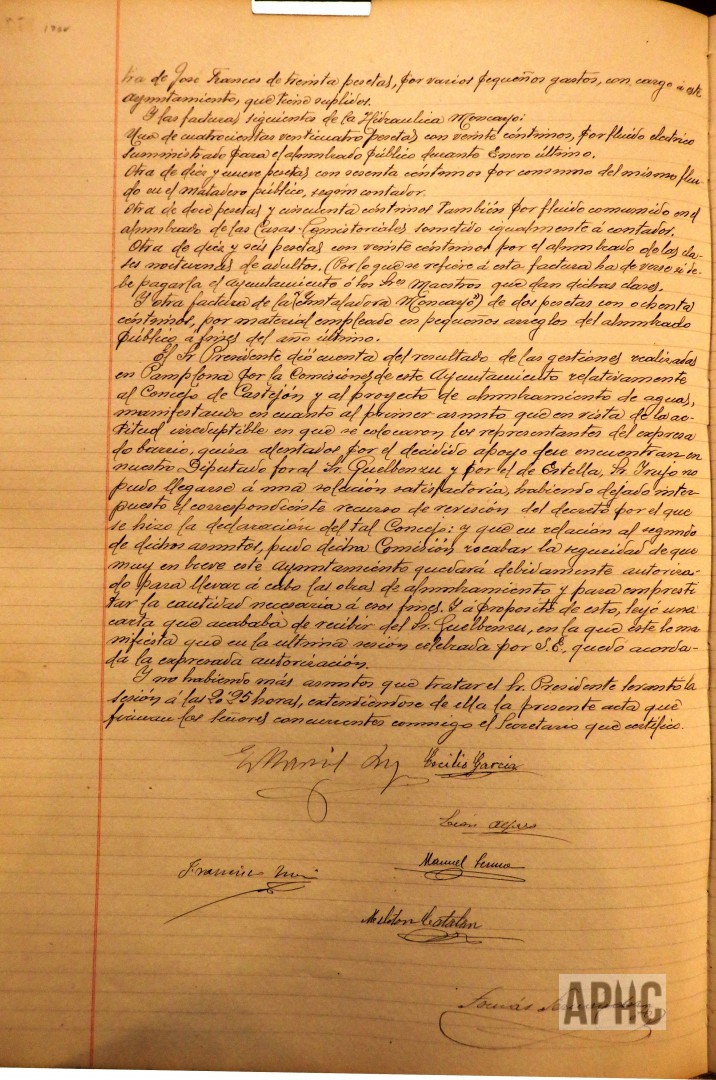 tra de Jose Frances de treinta pesetas, por varios pequeños gastos, con cargo á este
Ayuntamiento, que tiene suplidos.
Y las facturas siguientes de la Hidraulica Moncayo:
Una de cuatrocientas venticuatro pesetas con veinte céntimos, por fluido electrico
suministrado para el alumbrado público durante Enero último.
Otra de diez y nueve pesetas con sesenta céntimos por consumo del mismo flui-
do en el matadero público, según contador.
Otra de doce pesetas y cincuenta céntimos también por fluido consumido en el
alumbrado de las Casas-Consistoriales sometido igualmente á contador.
Otra de diez y seis pesetas con veinte céntimos por el alumbrado de las cla-
ses nocturnas de adultos. (Por lo que se refiere á esta factura ha de verse si de-
be pagarla el Ayuntamiento ó los Sres Maestros que dan dichas clases.
Y otra factura de la "Instaladora Moncayo" de dos pesetas con ochenta
céntimos, por material empleado en pequeños arreglos del alumbrado
público á fines del año último.
El Sr Presidente dió cuenta del resultado de las gestiones realizadas
en Pamplona por la Comisiones de este Ayuntamiento relativamente
al Concejo de Castejón y al proyecto de alumbramiento de aguas,
manifestando en cuanto al primer asunto que en vista de la ac-
titud irreductible en que se colocaron los representantes del expresa
do barrio, quiza alentados por el decidido apoyo que encuentran en
nuestro Diputado foral Sr. Guelbenzu y por el de Estella, Sr. Trujo no
pudo llegarse á una solución satisfactoria, habiendo dejado inter-
puesto el correspondiente recurso de revisión del decreto por el que
se hizo la declaración del tal Concejo: y que en relación al segundo
de dichos asuntos, pudo dicha Comisión recabar la seguridad de que
muy en breve este Ayuntamiento quedará debidamente autoriza-
do para llevar á cabo las obras de alumbramiento y para empresti
tar la cantidad necesaria á esos fines. Y a propósito de esto, leyó una
carta que acababa de recibir del Sr. Guelbenzu, en la que este le ma
nifiesta que en la ultima sesión celebrada por S.E. quedó acorda-
da la expresada autorización.
Y no habiendo más asuntos que tratar el Sr. Presidente levantó la
sesión á las 20'25 horas, extendiéndose de ella la presente acta que
firman los señores concurrentes conmigo el Secretario que certifico.
Cecilio Garcia
Manuel
Francisco
Meliton Catalan
Tomás
APHC